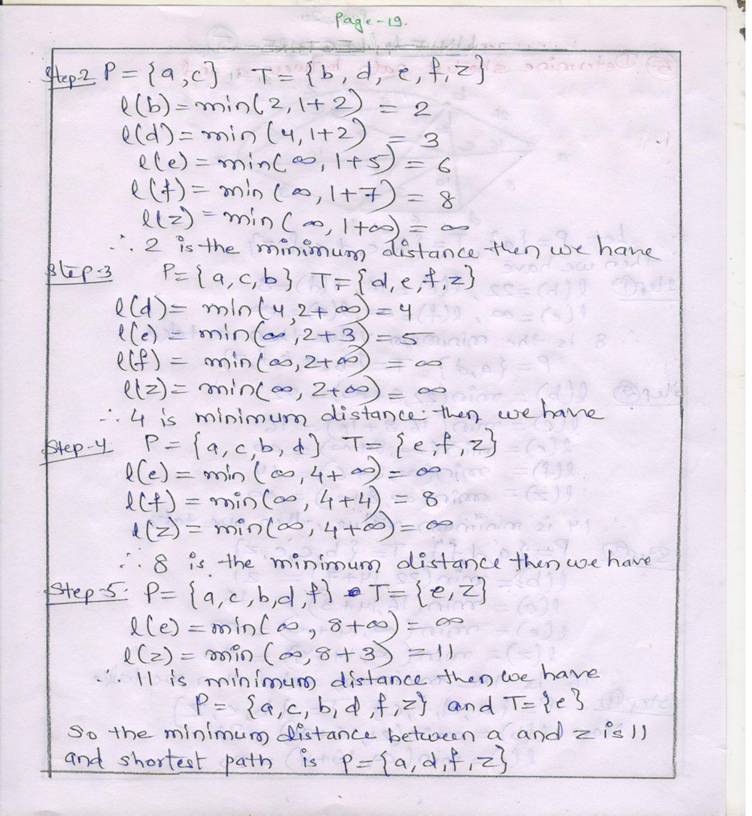 Page-19.
Step2 P={a,c} T={b,d,e,f,z}
l(b)=min(2,1+2) = 2
l(d)=min(4,1+2) = 3
l(e)=min(∞,1+5)=6
l(f)=min(∞,1+7)=8
l(z)=min(∞,1+∞)=∞
∴ 2 is the minimum distance then we have
Step-3 P={a,c,b} T={d,e,f,z}
l(d)= min(4,2+∞)=4
l(e)=min(∞,2+3)=5
l(f)=min(∞,2+∞) = ∞
l(z)=min(∞,2+∞)=∞
∴ 4 is minimum distance then we have
Step-4 P={a,c,b,d} T={e,f,z}
l(e)=min(∞,4+∞)=∞
l(f)=min(∞,4+4)=8
l(z)=min(∞,4+∞)=∞
∴ 8 is the minimum distance then we have
Step-5: P={a,c,b,d,f} T={e,z}
l(e)=min(∞,8+∞)=∞
l(z)=min(∞,8+3)=11
∴ 11 is minimum distance then we have
P={a,c,b,d,f,z} and T={e}
So the minimum distance between a and z is 11
and shortest path is P={a,d,f,z}